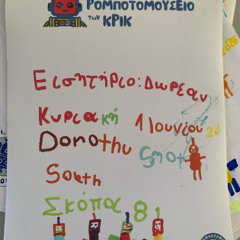 ΡΟΜΠΟΤΟΜΟΥΣΕΙΟ
των ΚΡΙΚ
Εισητήριο: Δωρεαν
Κυριακή 1 Ιουνίου 26
Dorothy Smoth
South
Σκόπα 8